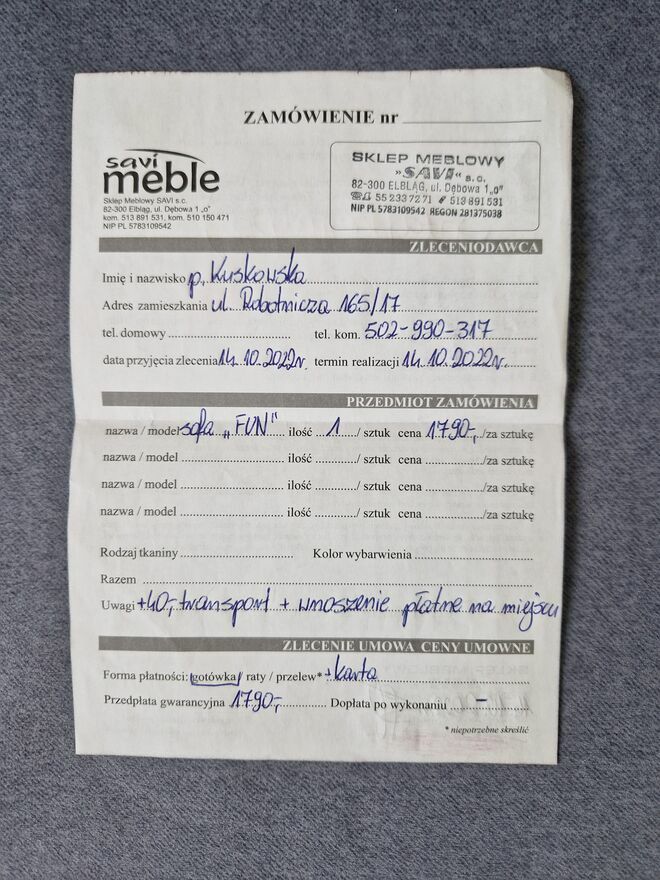 ZAMÓWIENIE nr
savi
meble
Sklep Meblowy SAVI s.c.
82-300 Elbląg, ul. Dębowa 1 „o"
kom. 513 891 531, kom. 510 150 471
NIP PL 5783109542
SKLEP MEBLOWY
»SAVI« s.c.
82-300 ELBLĄG, ul. Dębowa 1 „o"
☎ 55 2337271 513 891 531
NIP PL 5783109542 REGON 281375038
ZLECENIODAWCA
Imię i nazwisko p. Kuskowska
Adres zamieszkania ul. Robotnicza 165/17
tel. domowy tel. kom. 502-990-317
data przyjęcia zlecenia 14.10.2022r. termin realizacji 14.10.2022r.
PRZEDMIOT ZAMÓWIENIA
nazwa / model sofa „FUN" ilość 1 / sztuk cena 1790,- /za sztukę
nazwa / model ilość / sztuk cena /za sztukę
nazwa / model ilość / sztuk cena /za sztukę
nazwa / model ilość / sztuk cena /za sztukę
Rodzaj tkaniny Kolor wybarwienia
Razem
Uwagi +40,- transport + wnoszenie płatne na miejscu
ZLECENIE UMOWA CENY UMOWNE
Forma płatności: gotówka / raty / przelew* + karta
Przedpłata gwarancyjna 1790,- Dopłata po wykonaniu -
* niepotrzebne skreślić